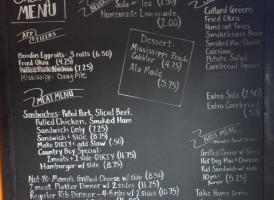 MENU
Soda w/ Tea
Homemade Lemonade
(2.00)
APP
STIZERS
Boudin Eggrolls - 3 rolls (6.50)
Fried Okra (4.75)
Mississippi Dawg Pile
Dessert:
Mississippi Peach
Cobbler (4.75)
Ala Mode
(5.75)
Collard Greens
Fried Okra
Hand Cut Fries
Smokehouse Beans
Smoked Mac-Cheese
Coleslaw
Potato Salad
Cornbread Squares
Extra Side (2.50)
Extra Cornbread
(.50)
MEAT MENU
Sandwiches: Pulled Pork, Sliced Beef,
Pulled Chicken, Smoked Ham
Sandwich Only (7.25)
Sandwich + Side (8.75)
Make DIRTY! add Slaw (.50)
Country Boy Special:
2 meats + 1 side - DIRTY (11.75)
Hamburger w/ side (8.75)
Not Yo Mama's Grilled Cheese w/ side (8.50)
2 meat Platter Dinner w/ 2 sides (11.75)
Regular Rib Dinner - 4-5 w/ 2 sides (10.75)
KIDS MENU
Grilled Cheese w/ Fries
Hot Dog Mac + Cheese
Kid Sandwich w/ side
(6.25)
Take Home